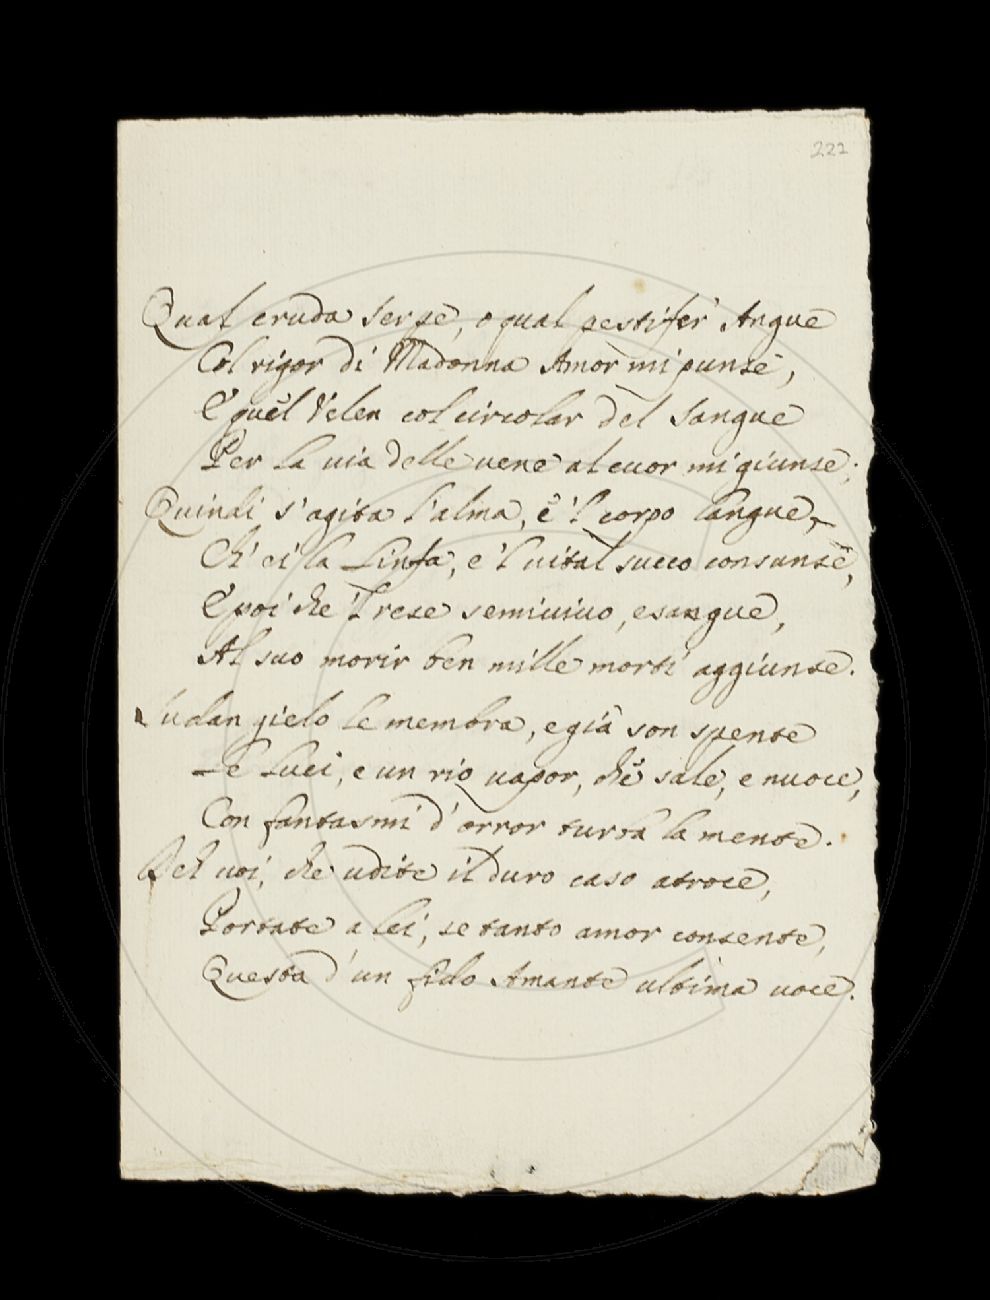 222
Qual cruda serpe, o qual pestifer' Angue
Col rigor di Madonna Amor mi punse,
E quel Velen col circolar del sangue
Per la via delle vene al cuor mi giunse;
Quindi s'agita l'alma, e 'l corpo langue,
Ch' ei la Linfa, e 'l vital succo consunse,
E poi che 'l rese semivivo, esangue,
Al suo morir ben mille morti aggiunse.
Sudan gielo le membra, e già son spente
Le Luci, e un rio vapor, che sale, e nuoce,
Con fantasmi d'orror turba la mente.
Deh voi, che udite il duro caso atroce,
Portate a lei, se tanto amor consente,
Questa d'un fido Amante ultima voce.